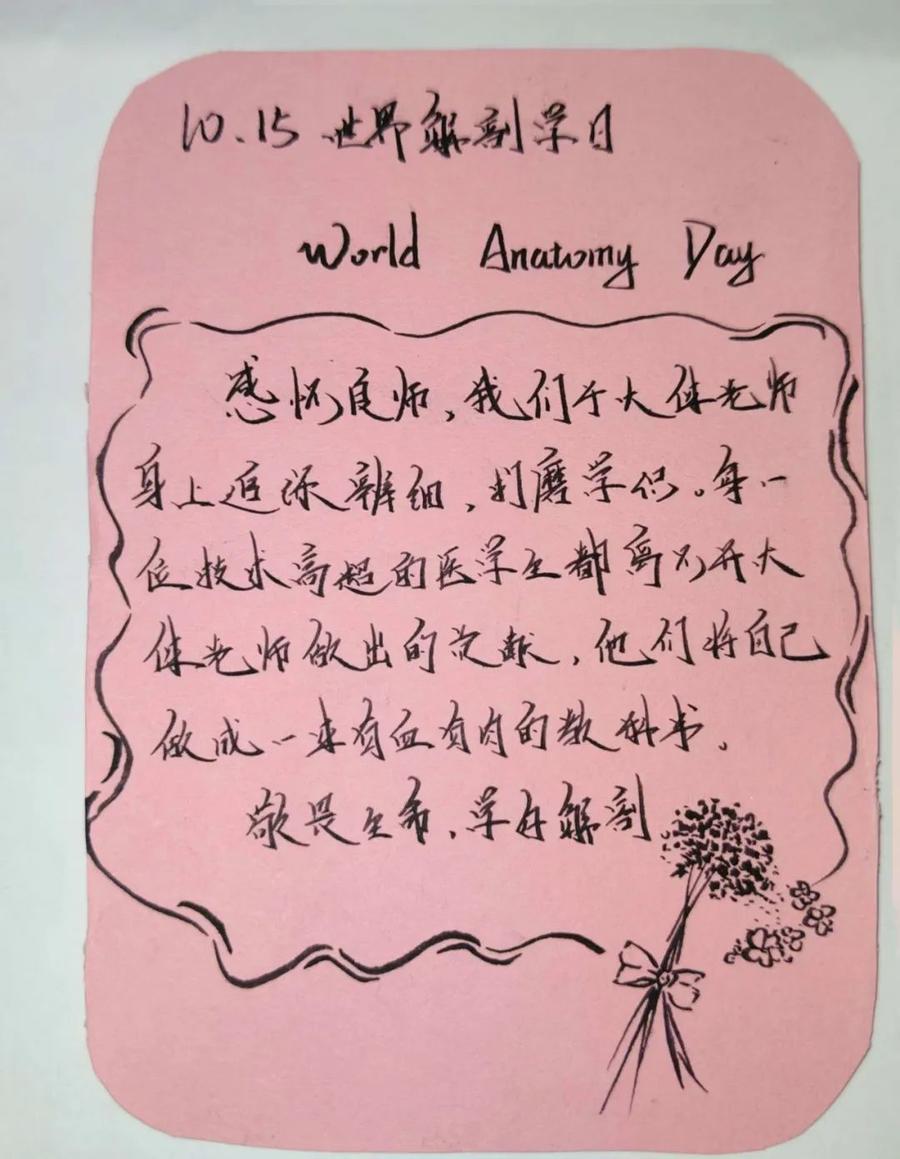 10.15 世界解剖学日
World Anatomy Day
感怀良师,我们于大体老师
身上追源辨细,打磨学识。每一
位技术高超的医学生都离不开大
体老师做出的贡献,他们将自己
做成一本有血有肉的教科书。
敬畏生命,学好解剖